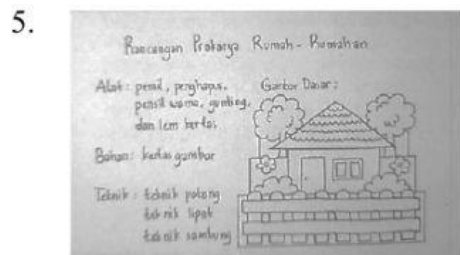 5.
Rancangan Prakarya Rumah - Rumahan
Alat : pensil, penghapus,
pensil warna, gunting,
dan lem kertas
Gambar Dasar :
Bahan : kertas gambar
Teknik : teknik potong
teknik lipat
teknik sambung